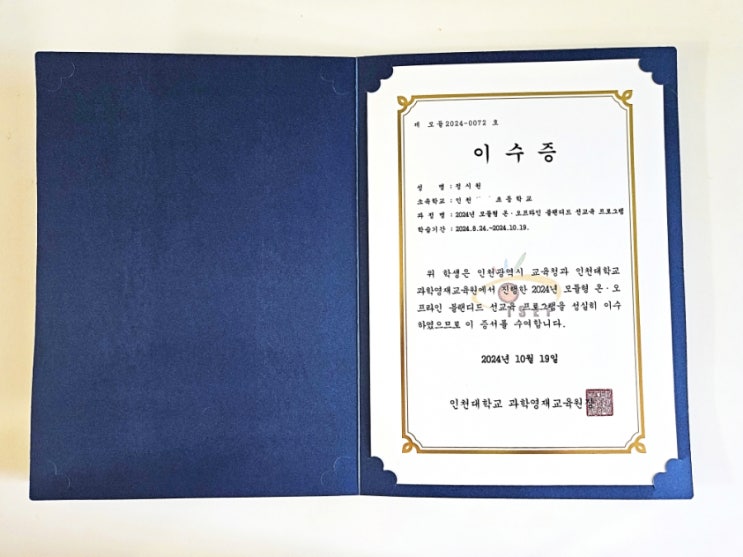 제 모듈2024-0072 호
이 수 증
성 명 : 정 시 원
소속학교 : 인 천 초 등 학 교
과 정 명 : 2024년 모듈형 온·오프라인 블랜디드 선교육 프로그램
학습기간 : 2024.8.24.~2024.10.19.
위 학생은 인천광역시 교육청과 인천대학교
과학영재교육원에서 진행한 2024년 모듈형 온·오
프라인 블랜디드 선교육 프로그램을 성실히 이수
하였으므로 이 증서를 수여합니다.
2024년 10월 19일
인천대학교 과학영재교육원장